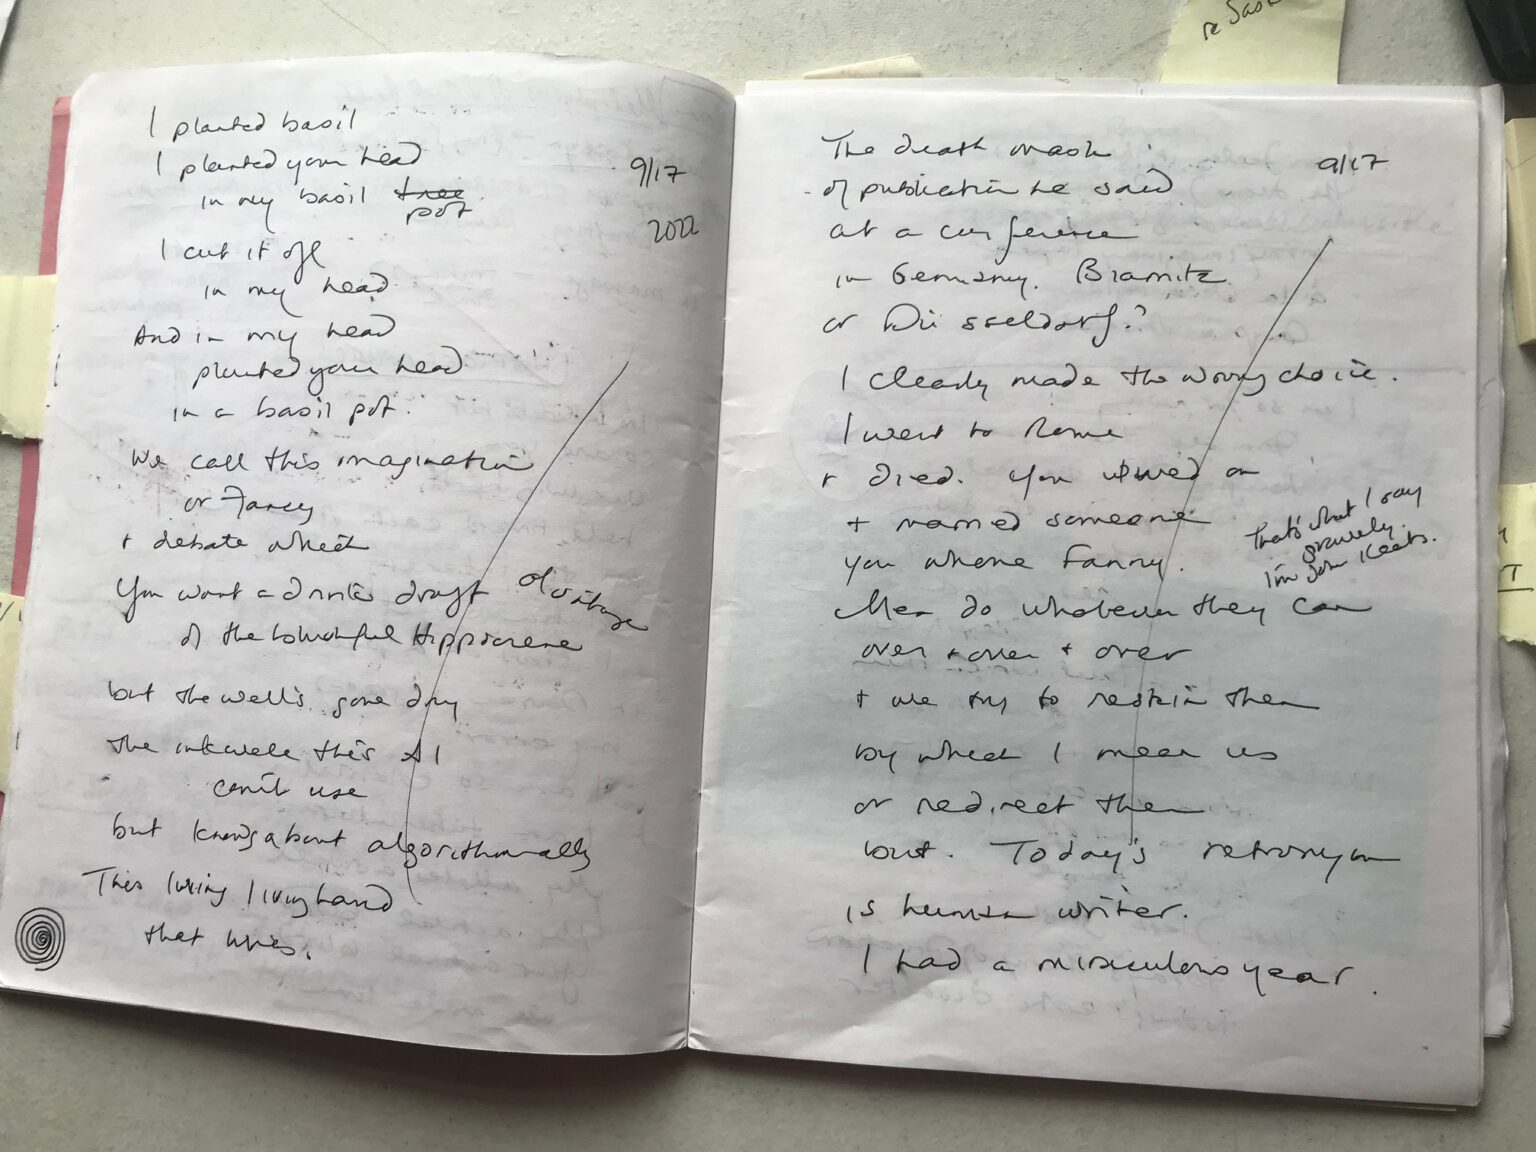 I planted basil
I planted your head
9/17
in my basil tree
pot
2022
I cut it off
in my head
And in my head
planted your head
in a basil pot.
We call this imagination
or Fancy
+ debate which
You want a drink draft
of vintage
of the blushful Hippocrene
but the well's gone dry
the inkwell this AI
can't use
but knows about algorithmically
This living living hand
that writes.
re
The death mask
9/17
of publication he said
at a conference
in Germany.
or Düsseldorf?
I clearly made the wrong choice.
I went to Rome
+ died. You lived on
+ married someone
you whose Fanny.
That's what I say
gravely.
I'm John Keats.
Men do whatever they can
over + over + over
+ we try to reskin them
by which I mean us
or redirect them
but. Today's retronym
is human writer.
I had a miraculous year.